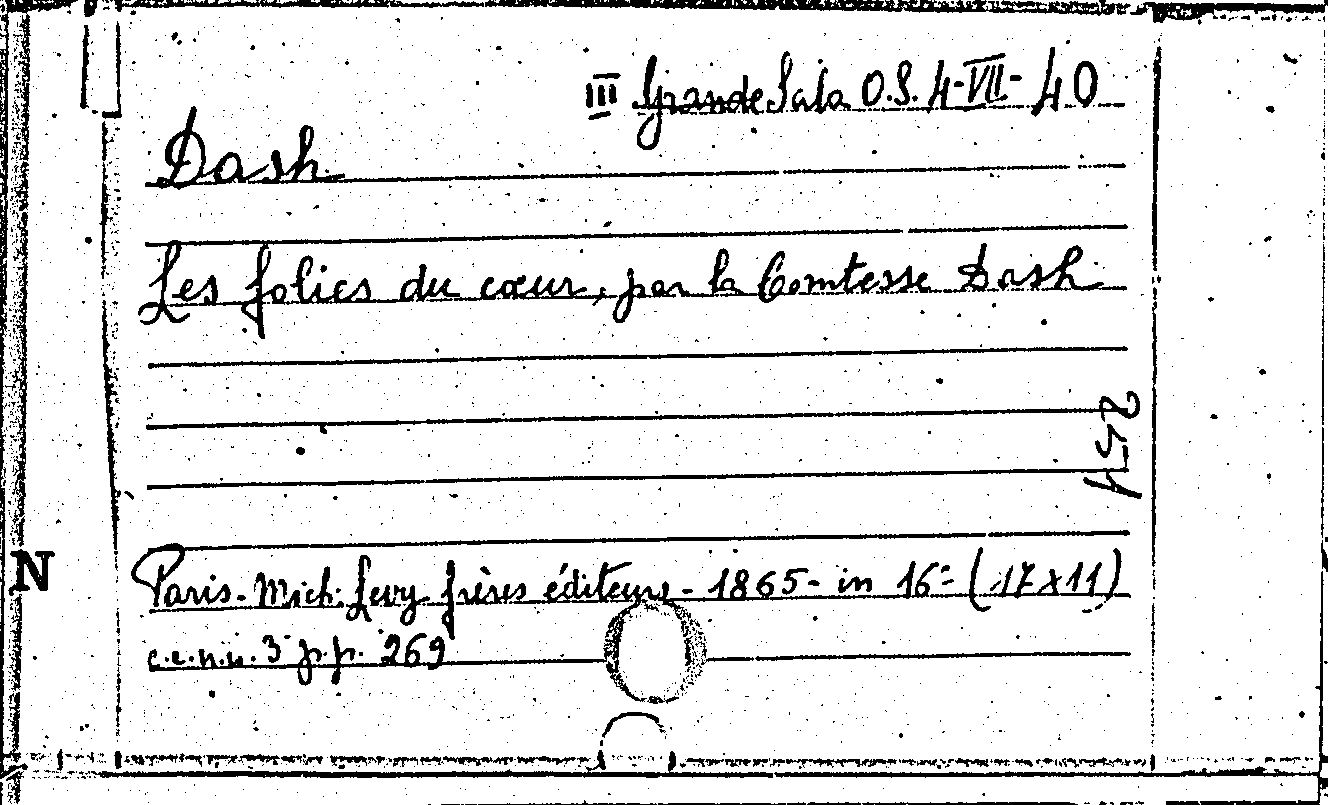 III Grande Sala O.S. 4-VII-40
Dash
Les folies du cœur, par la Comtesse Dash
254
N
Paris. Mich. Levy frères éditeurs - 1865 - in 16º (17x11)
c.c.n.n. 3 p.p. 269